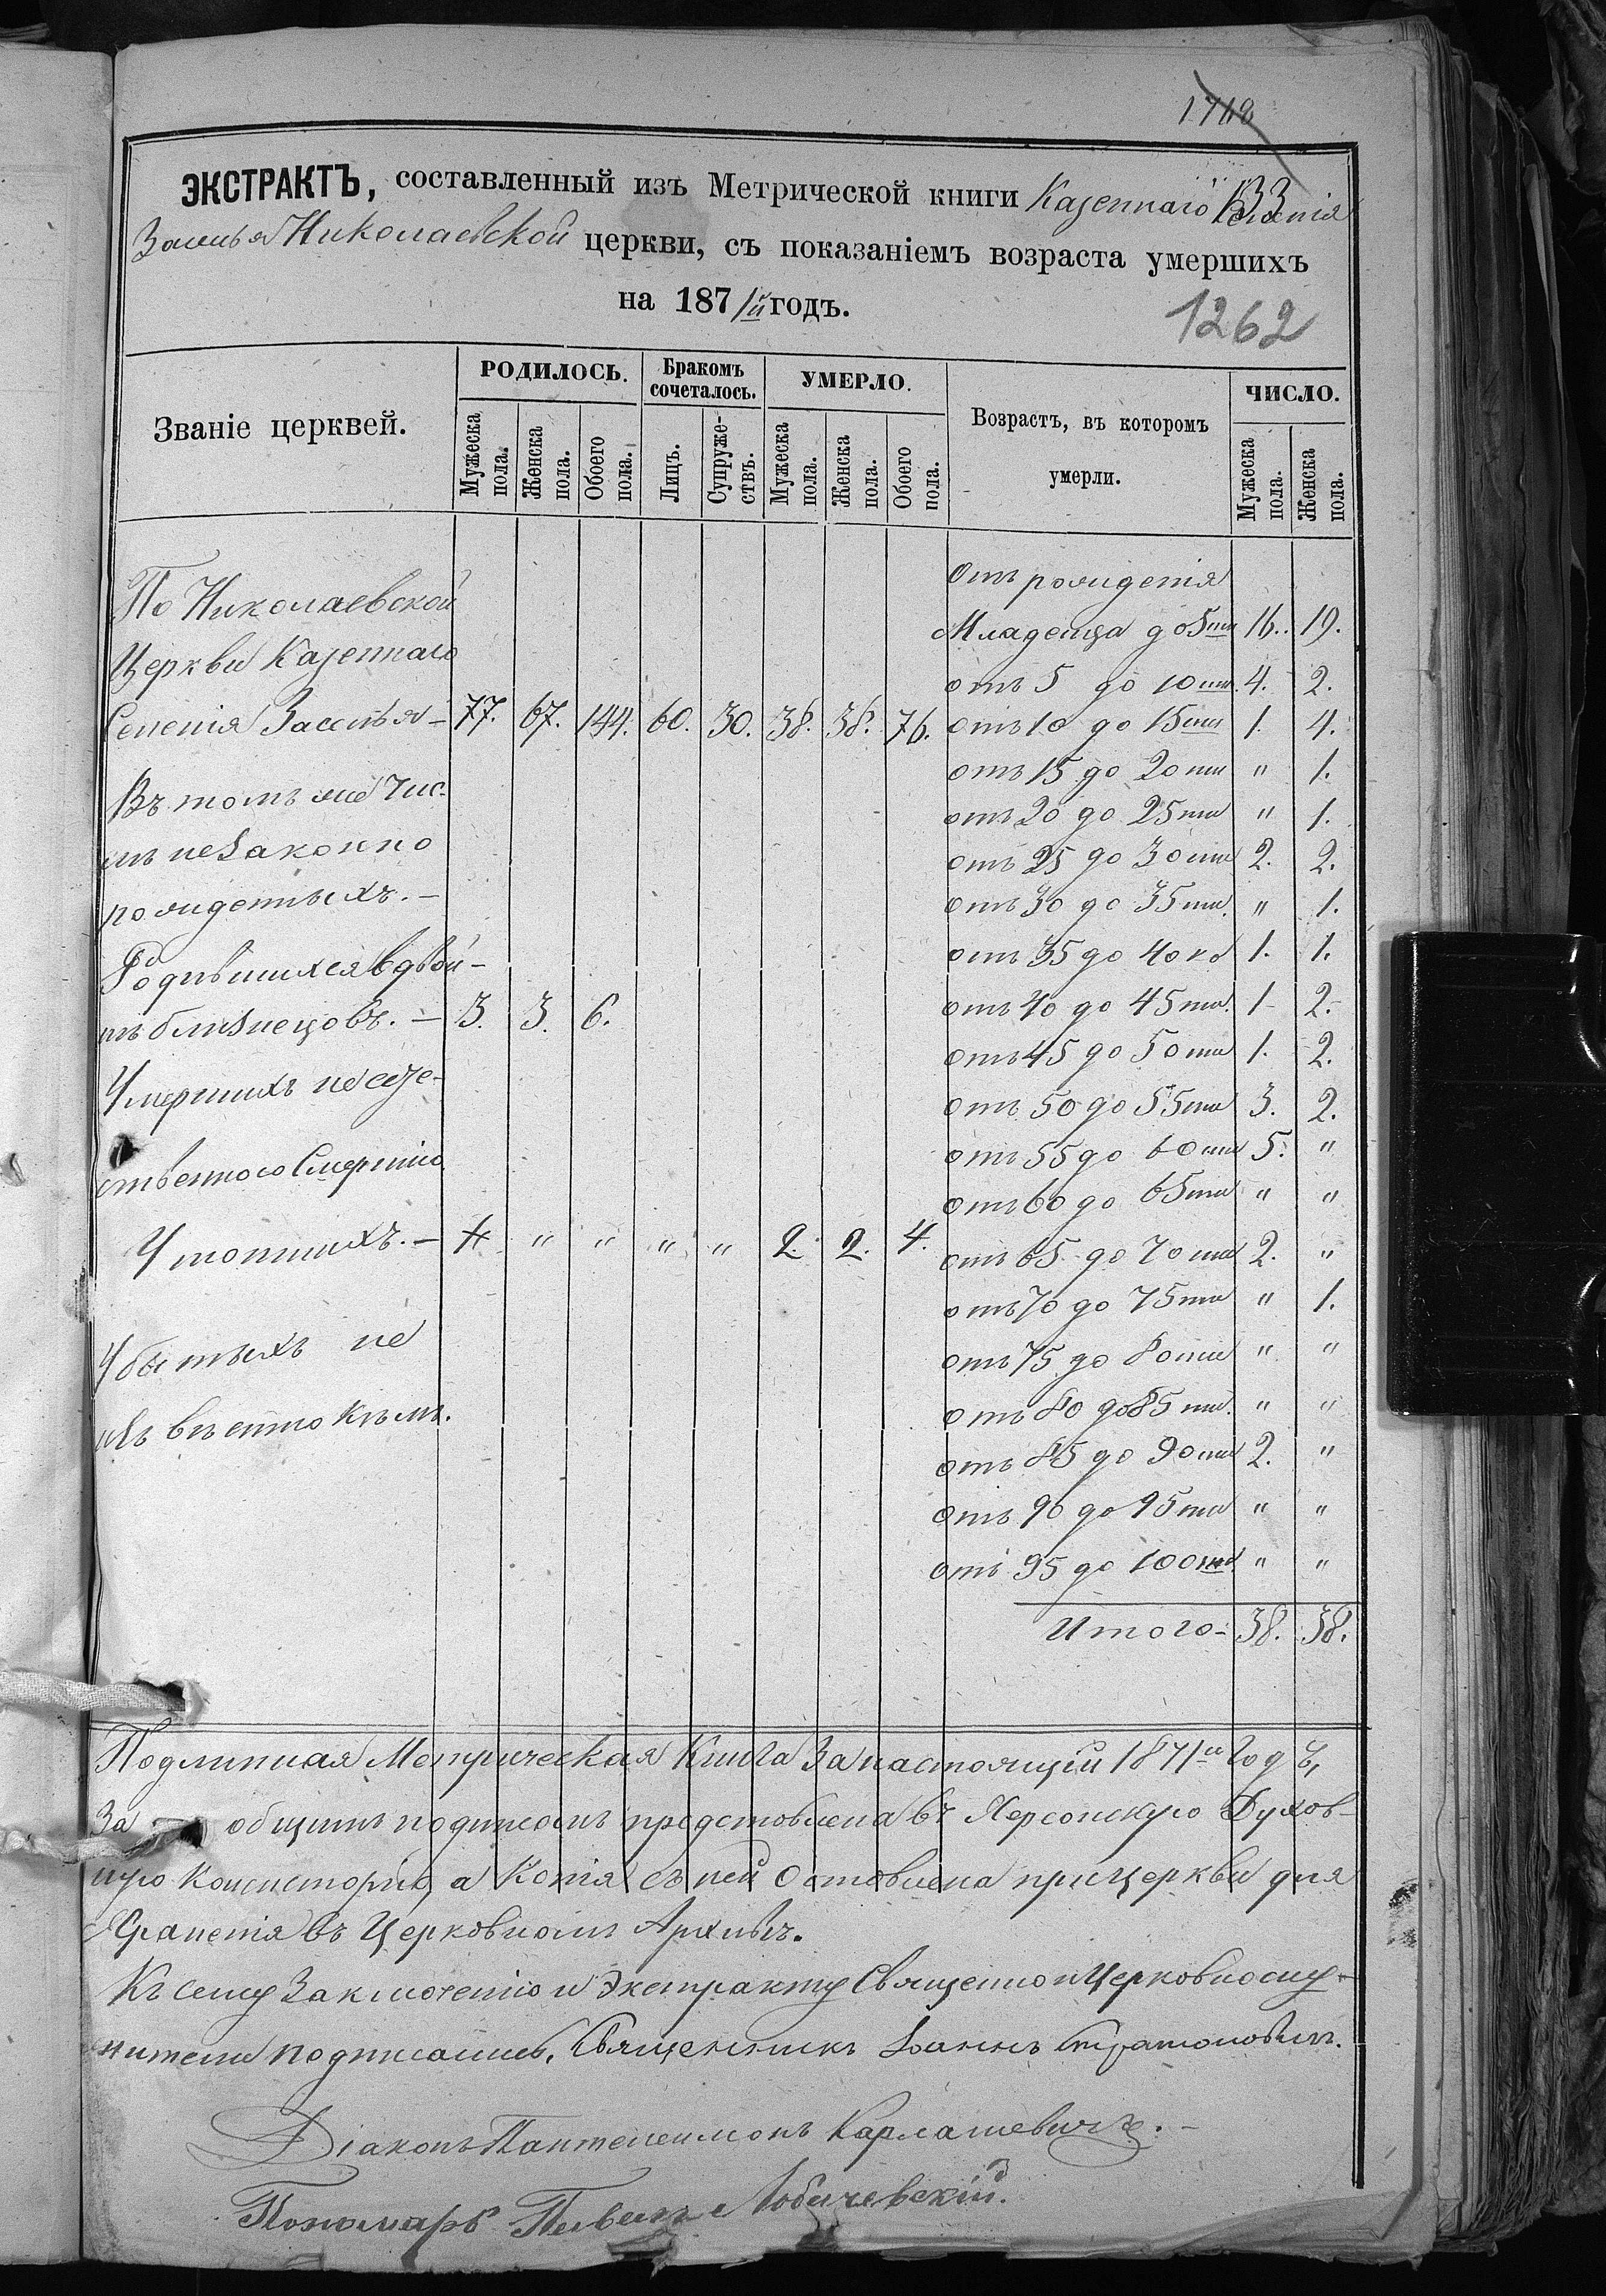 1718
33
ЭКСТРАКТЪ, составленный изъ Метрической книги Казеннаго Селенія
Засѣлья Николаевской церкви, съ показаніемъ возраста умершихъ
на 1871й годъ.
1262
Званіе церквей.
РОДИЛОСЬ.
Мужеска пола.
Женска пола.
Обоего пола.
Бракомъ сочеталось.
Лицъ.
Супружествъ.
УМЕРЛО.
Мужеска пола.
Женска пола.
Обоего пола.
Возрастъ, въ которомъ
умерли.
ЧИСЛО.
Мужеска пола.
Женска пола.
Отъ рожденія
По Николаевской
Младенца до 5ти 16. 19.
Церкви Казеннаго
отъ 5 до 10ти. 4. 2.
Селенія Засѣлья - 77. 67. 144. 60. 30. 38. 38. 76. отъ 10 до 15ти 1. 4.
отъ 15 до 20ти " 1.
Въ томъ же Чис-
отъ 20 до 25ти " 1.
лѣ незаконно
отъ 25 до 30ти 2. 2.
рожденныхъ. -
отъ 30 до 35ти. " 1.
Родившихся вдвой-
отъ 35 до 40ка 1. 1.
нѣ близнецовъ. - 3. 3. 6. отъ 40 до 45ти. 1 - 2. -
отъ 45 до 50ти 1. 2.
Умершихъ неесте-
отъ 50 до 55ти 3. 2.
ственною Смертію
отъ 55 до 60ти 5. "
отъ 60 до 65ти " "
Утопшихъ. - " " " " 2. 2. 4. отъ 65 до 70ти 2. "
отъ 70 до 75ти " 1.
Убитыхъ не
отъ 75 до 80ти " "
отъ 80 до 85ти. " "
извѣстно кѣмъ.
отъ 85 до 90ти 2. "
отъ 90 до 95ти " "
отъ 95 до 100та " "
Итого - 38. 38.
Подлинная Метрическая Книга За настоящій 1871й Годъ,
За общимъ подписомъ представлена въ Херсонскую Духов-
ную Консисторію, а Копія съ ней Оставлена при Церкви для
Храненія въ Церковномъ Архивѣ.
Къ сему Заключенію и Экстракту Священно и Церковнослу-
жители подписались. Священникъ Іоаннъ
Діаконъ Пантелеимонъ Карлашевичъ. -
Пономарь Павелъ Лобачевскій.